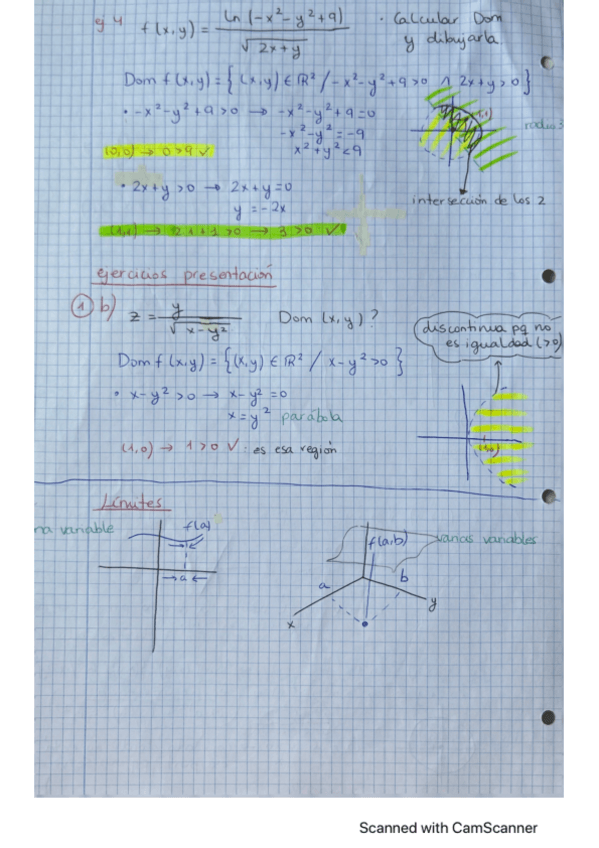 ej 4 f(x,y) = ln(-x²-y²+9) / √(2x+y) · Calcular Dom y dibujarla
Dom f(x,y) = { (x,y) ∈ ℝ² / -x²-y²+9>0 ∧ 2x+y>0 }
· -x²-y²+9>0 → -x²-y²+9=0
-x²-y²=-9
(0,0) → 0>9 ✓ x²+y²<9
(1,1)
radio 3
· 2x+y>0 → 2x+y=0
y=-2x
intersección de los 2
(1,1) → 2·1+1>0 → 3>0 ✓
ejercicios presentación
① b) z = y / √(x-y²) Dom (x,y)?
discontinua pq no es igualdad (>0)
Dom f(x,y) = {(x,y) ∈ ℝ² / x-y²>0 }
· x-y²>0 → x-y²=0
x=y² parábola
(1,0) → 1>0 ✓ : es esa región
(1,0)
Límites
na variable
f(a)
→a←
f(a,b)
varias variables
a
b
x
y
Scanned with CamScanner